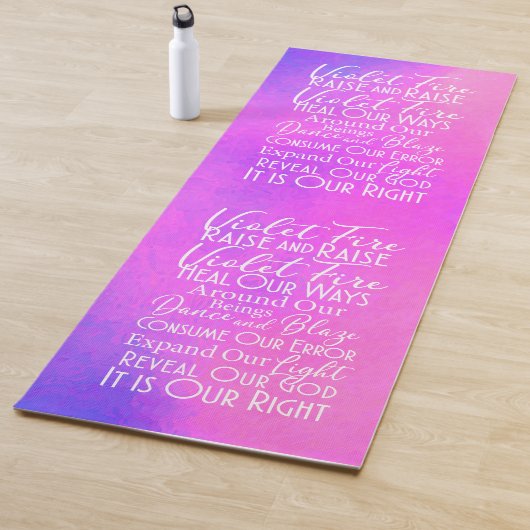 Violet Fire
Raise and Raise
Violet Fire
Heal Our Ways
Around Our
Beings
Dance and Blaze
Consume Our Error
Expand Our Light
Reveal Our God
It is Our Right
Violet Fire
Raise and Raise
Violet Fire
Heal Our Ways
Around Our
Beings
Dance and Blaze
Consume Our Error
Expand Our Light
Reveal Our God
It is Our Right